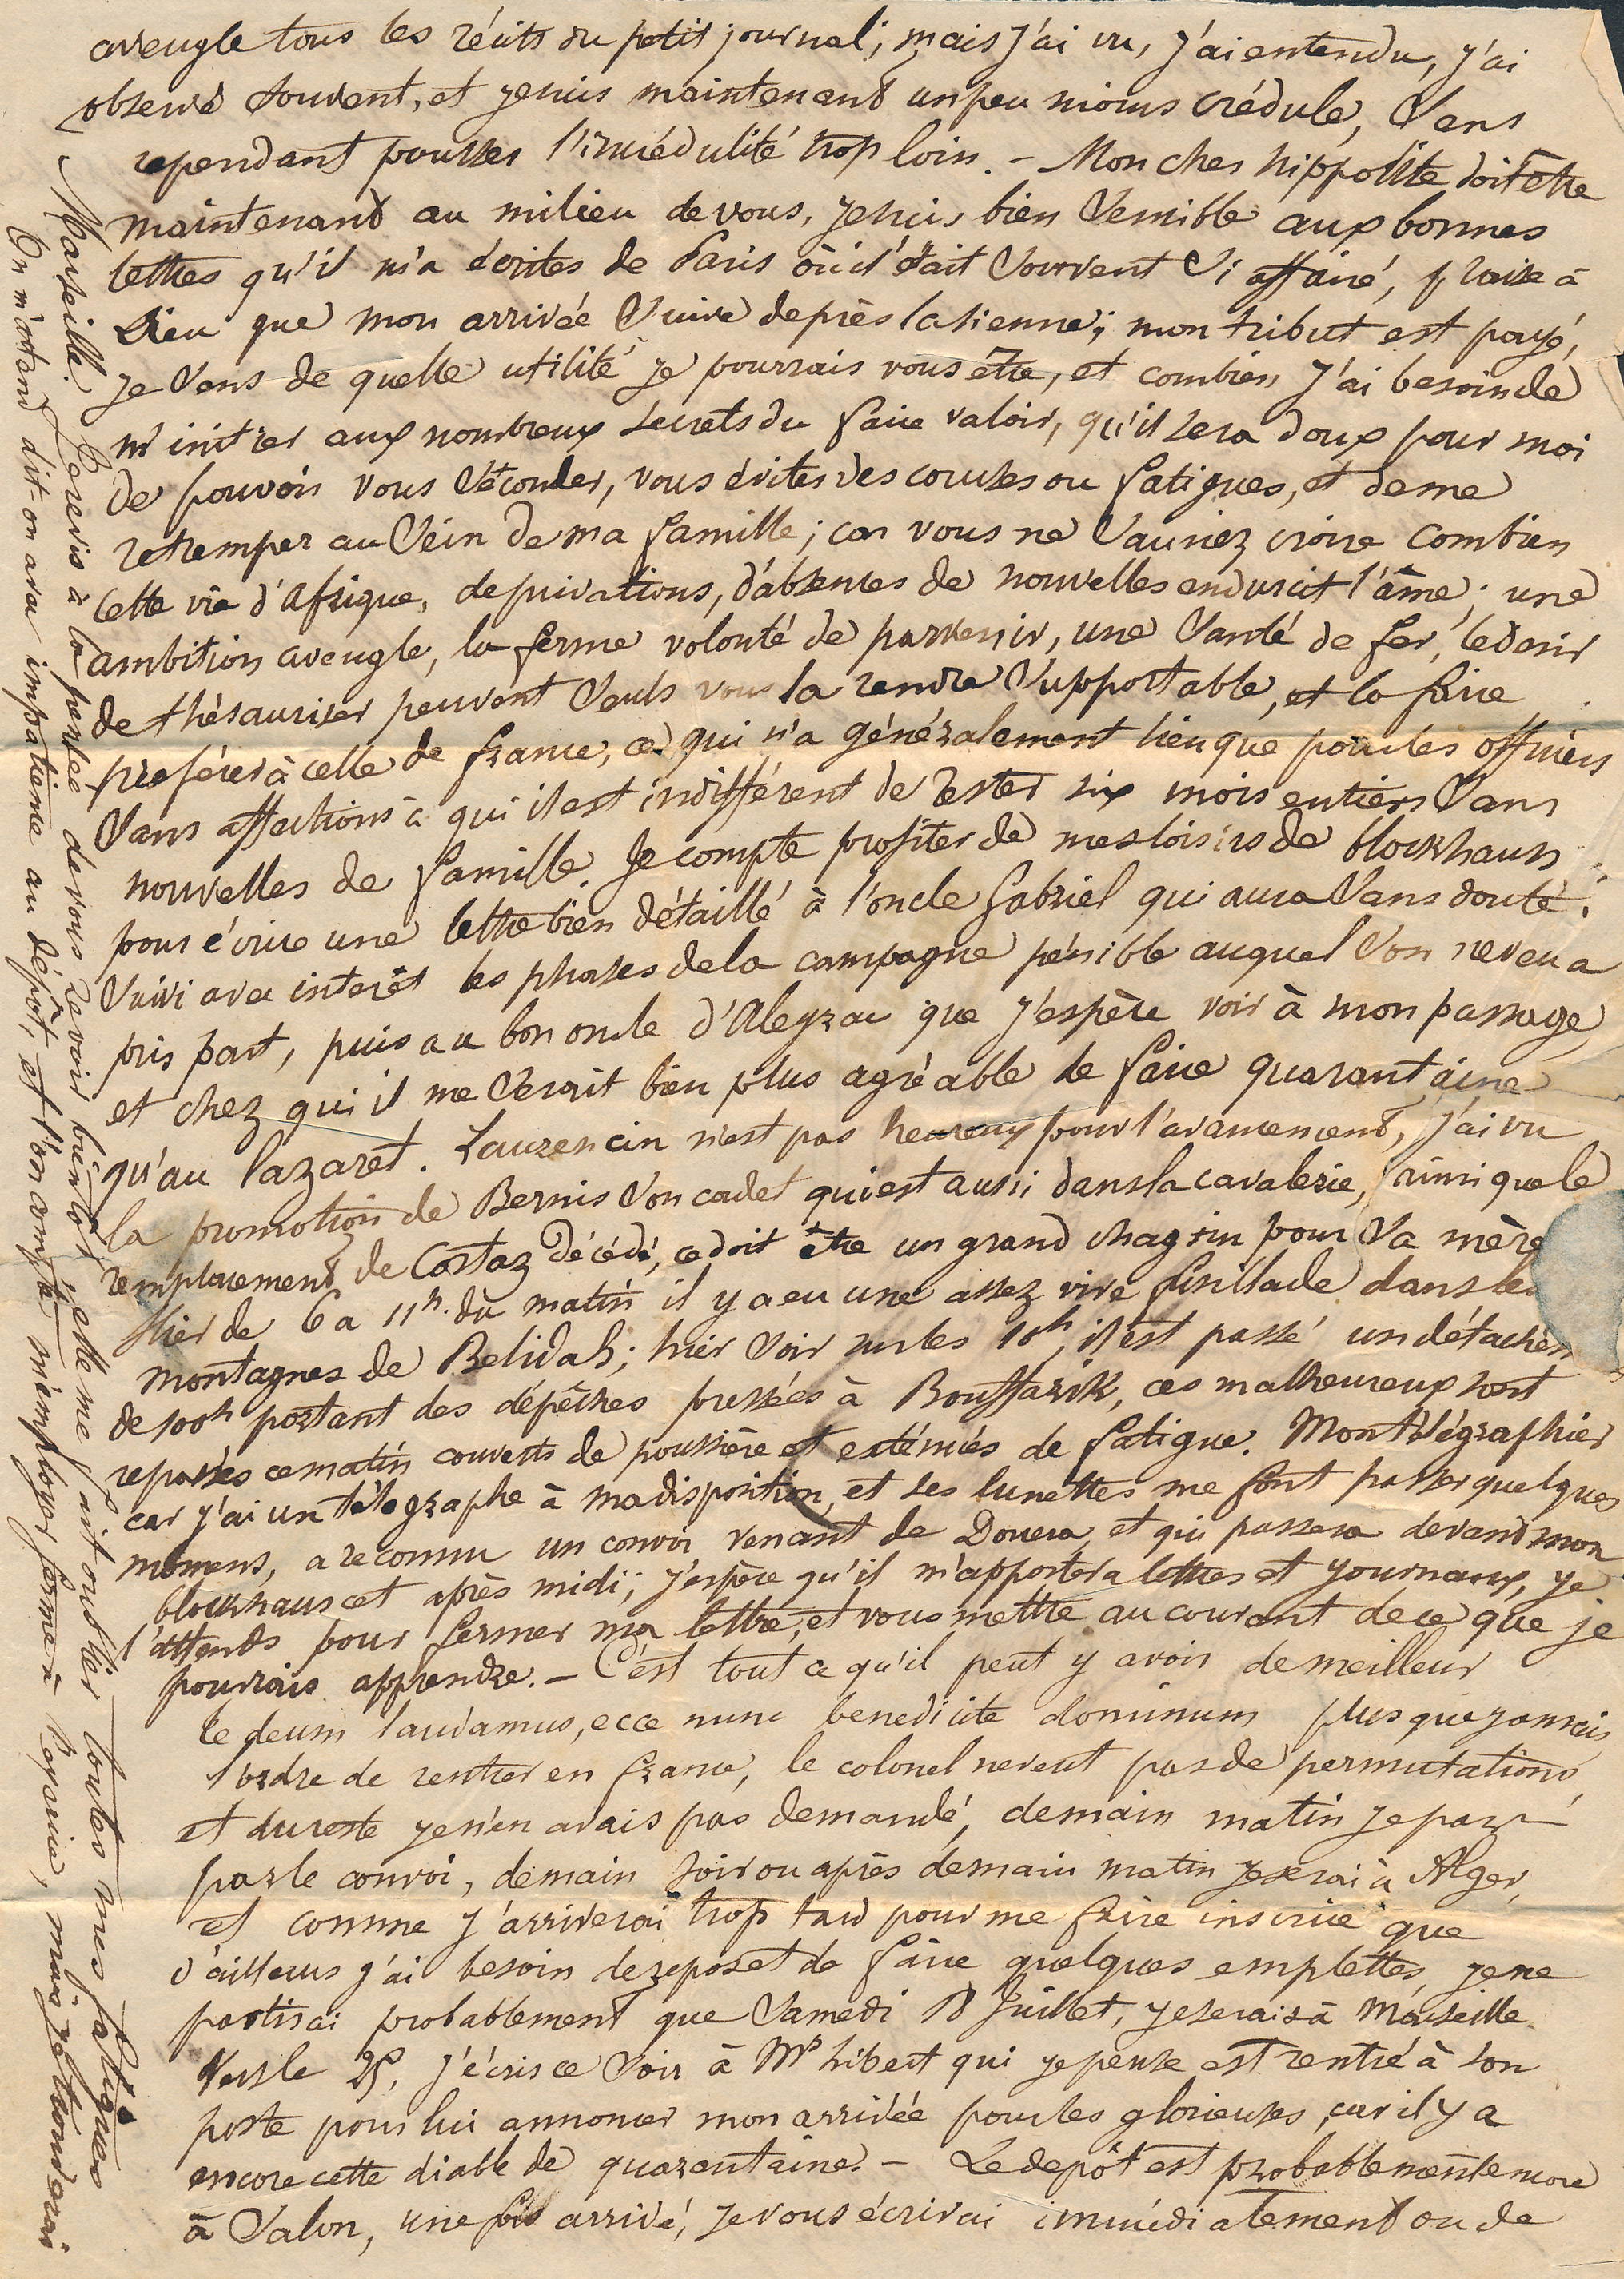 aveugle tous les récits du petit journal; mais j'ai vu, j'ai entendu, j'ai
observé souvent, et je suis maintenant un peu moins crédule, sans
cependant pousser l'incrédulité trop loin. - Mon cher hippolite doit être
maintenant au milieu de vous, je suis bien sensible aux bonnes
lettres qu'il m'a écrites de Paris où il était souvent si affairé, plaise à
Dieu que mon arrivée suive de près la sienne; mon tribut est payé,
je sens de quelle utilité je pourrais vous être, et combien j'ai besoin de
m'initier aux nombreux secrets du faire valoir, qu'il sera doux pour moi
de pouvoir vous séconder, vous éviter des courses ou fatigues, et de me
retremper au sein de ma famille; car vous ne sauriez croire combien
cette vie d'Afrique, de privations, d'absences de nouvelles endurcit l'âme; une
ambition aveugle, la ferme volonté de parvenir, une santé de fer, le désir
de thésauriser peuvent seuls vous la rendre supportable, et la faire
preférer à celle de france, ce qui n'a généralement lieu que pour les officiers
sans affections à qui il est indifférent de rester six mois entiers sans
nouvelles de famille. Je compte profiter de mes loisirs de blockhaus
pour écrire une lettre bien détaillé à l'oncle Gabriel qui aura sans doute
suivi avec interêt les phases de la campagne pénible auquel son neveu a
pris part, puis au bon oncle d'Aleyrac que j'espère voir à mon passage
et chez qui il me serait bien plus agréable de faire quarantaine
qu'au lazaret. Lauzencin n'est pas heureux pour l'avancement, j'ai vu
la promotion de Bernis son cadet qui est aussi dans la cavalerie, ainsi que le
remplacement de Costaz décédé, ce doit être un grand chagrin pour sa mère
Hier de 6 a 11h. du matin il y a eu une assez vive fusillade dans les
montagnes de Belidah; hier soir sur les 10h, il est passé un détachem
de 100h portant des dépêches pressées à Bouffarik, ces malheureux sont
repassés ce matin couverts de poussière et exténués de fatigue. Mon télégraphier
car j'ai un télegraphe à ma disposition, et ses lunettes me font passer quelques
momens, a reconnu un convoi venant de Douera, et qui passera devant mon
blockhaus cet après midi; j'espère qu'il m'apportera lettres et journaux, je
l'attends pour fermer ma lettre, et vous mettre au courant de ce que je
pourrais apprendre. - C'est tout ce qu'il peut y avoir de meilleur
te deum laudamus, ecce nunc benedicite dominum plus que jamais
l'ordre de rentrer en france, le colonel ne veut pas de permutations,
et du reste je n'en avais pas demandé, demain matin je pars
par le convoi, demain soir ou après demain matin je serai à Alger,
et comme j'arriverai trop tard pour me faire inscrire que
d'ailleurs j'ai besoin de repos et de faire quelques emplettes, je ne
partirai probablement que Samedi 18 Juillet, je serais à Marseille
vers le 25, j'écris ce soir à Mr hibert qui je pense est rentré à son
poste pour lui annoncer mon arrivée pour les glorieuses, car il y a
encore cette diable de quarantaine. - Le depôt est probablement encore
à Salon, une fois arrivé, je vous écrirai immédiatement ou de
Marseille. Je revis à la pensée de vous revoir bientôt, elle me fait oublier toutes mes fatigues
On m'attend dit-on avec impatience au dépôt, et l'on compte m'employer ferme à l'arrivée, mais je trouverai